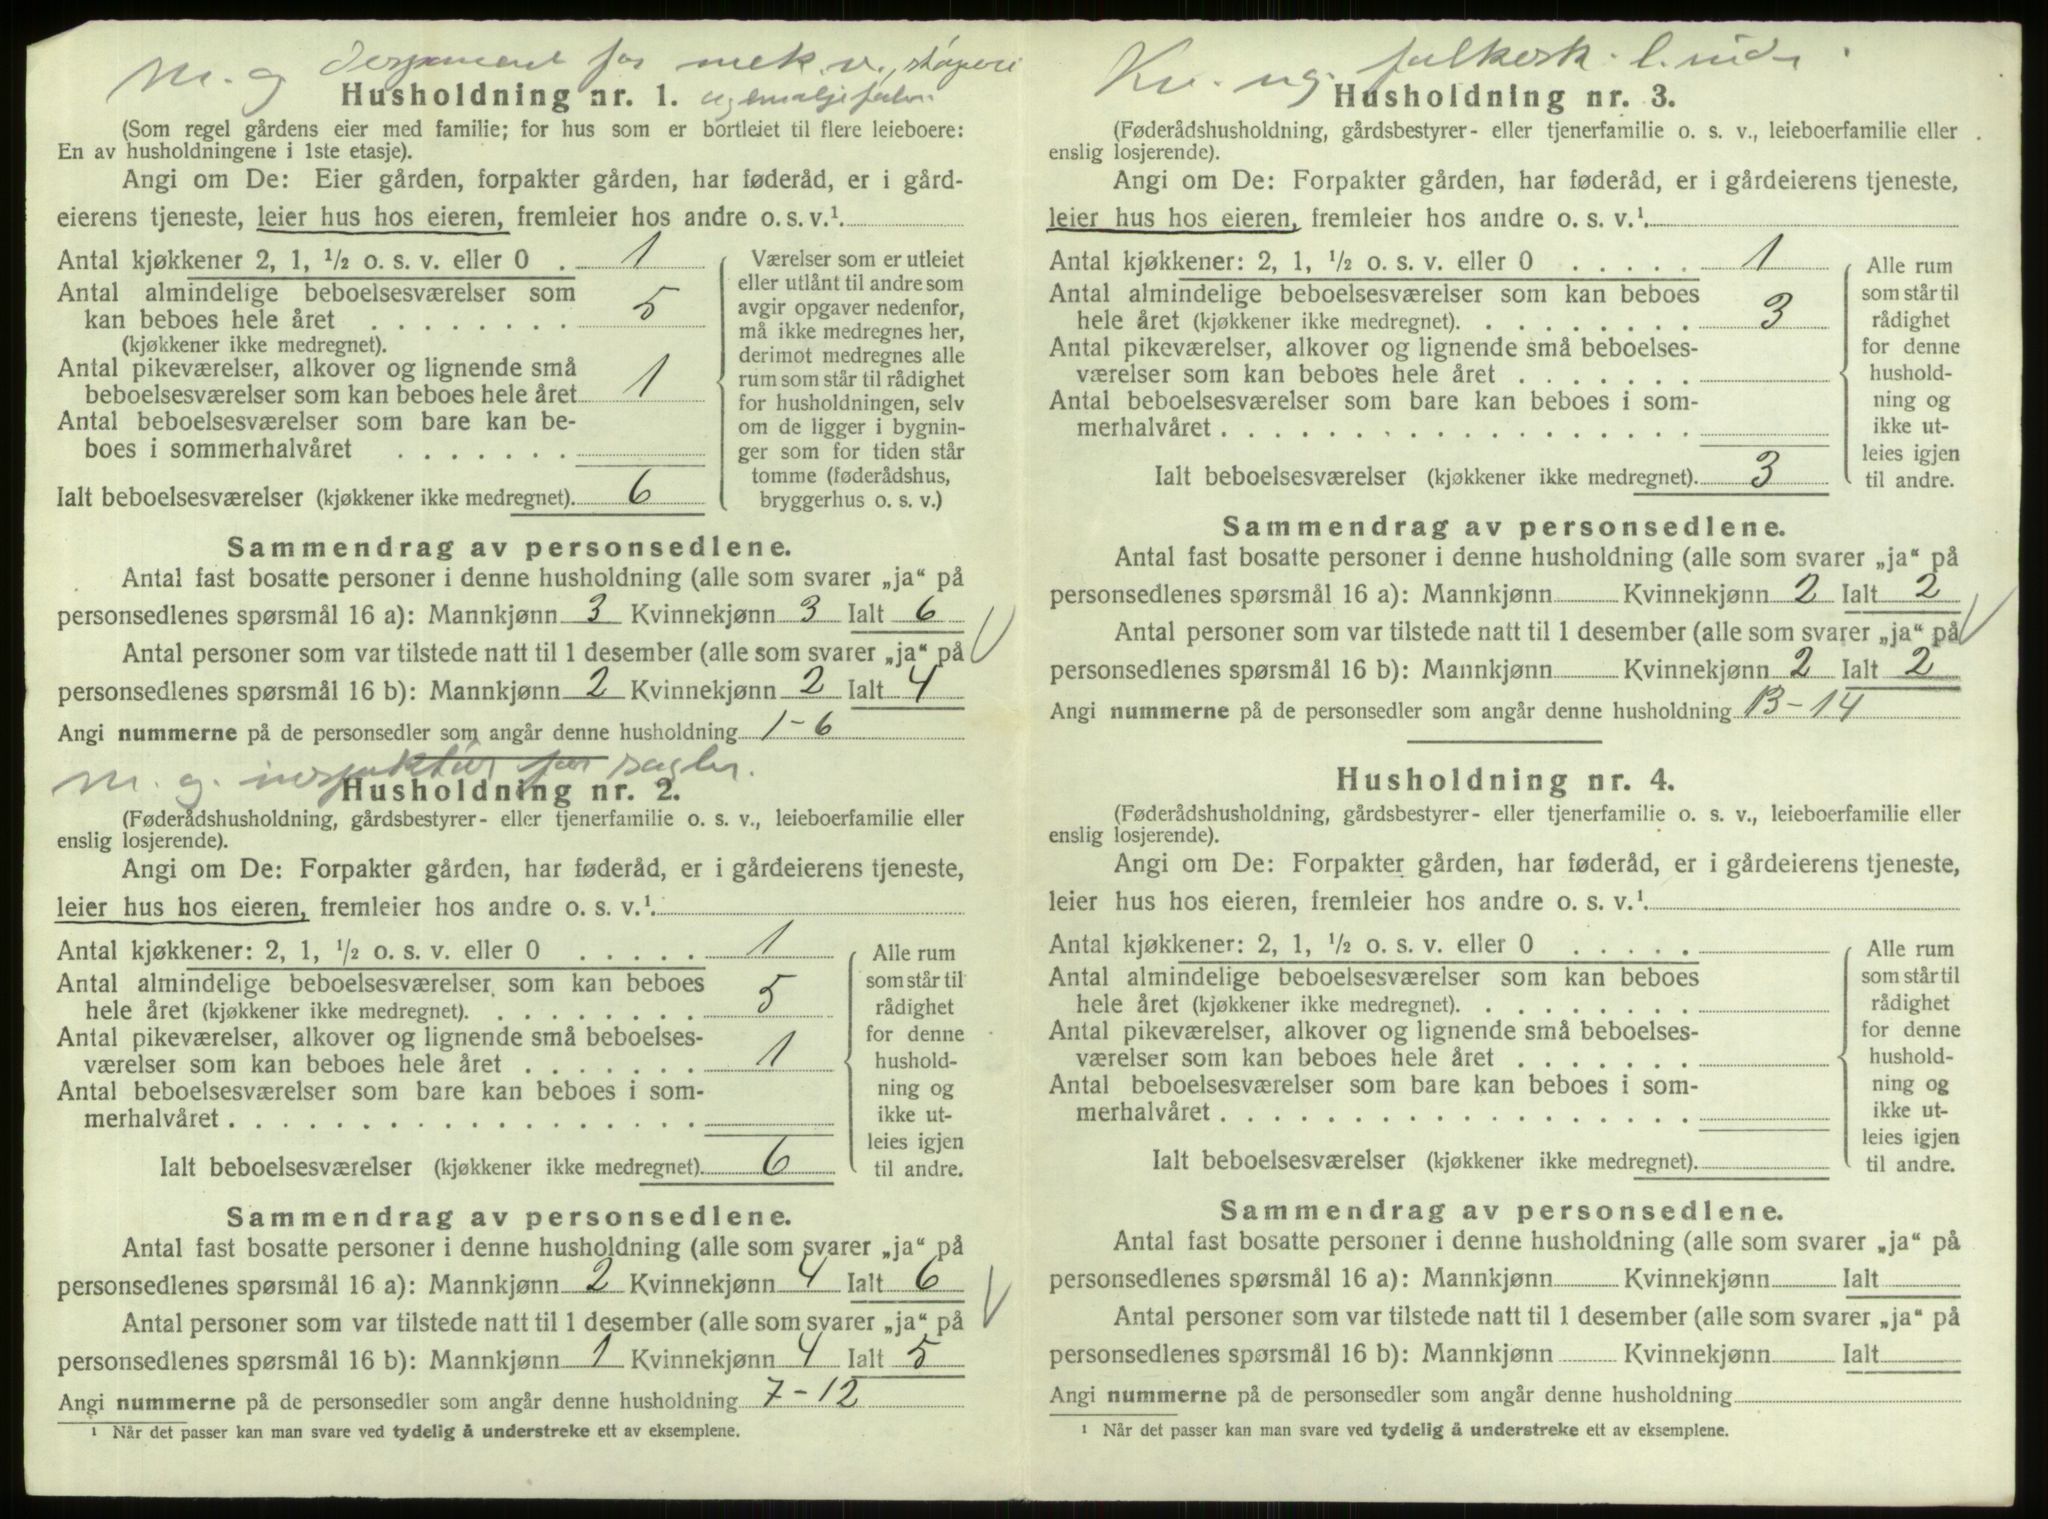 M. g. disponent for mek. v., støperi
og emaljefabr.
Husholdning nr. 1.
(Som regel gårdens eier med familie; for hus som er bortleiet til flere leieboere:
En av husholdningene i 1ste etasje).
Angi om De: Eier gården, forpakter gården, har føderåd, er i gård-
eierens tjeneste, leier hus hos eieren, fremleier hos andre o. s. v.¹
Antal kjøkkener 2, 1, ½ o. s. v. eller 0 . 1
Antal almindelige beboelsesværelser som
kan beboes hele året . . . . . . . . 5
(kjøkkener ikke medregnet).
Antal pikeværelser, alkover og lignende små
beboelsesværelser som kan beboes hele året 1
Antal beboelsesværelser som bare kan be-
boes i sommerhalvåret . . . . . . .
Ialt beboelsesværelser (kjøkkener ikke medregnet). 6
Værelser som er utleiet
eller utlånt til andre som
avgir opgaver nedenfor,
må ikke medregnes her,
derimot medregnes alle
rum som står til rådighet
for husholdningen, selv
om de ligger i bygnin-
ger som for tiden står
tomme (føderådshus,
bryggerhus o. s. v.)
Sammendrag av personsedlene.
Antal fast bosatte personer i denne husholdning (alle som svarer „ja“ på
personsedlenes spørsmål 16 a): Mannkjønn 3 Kvinnekjønn 3 Ialt 6
Antal personer som var tilstede natt til 1 desember (alle som svarer „ja“ på
personsedlenes spørsmål 16 b): Mannkjønn 2 Kvinnekjønn 2 Ialt 4
Angi nummerne på de personsedler som angår denne husholdning 1-6
M. g. inspektør for
Husholdning nr. 2.
(Føderådshusholdning, gårdsbestyrer- eller tjenerfamilie o. s. v., leieboerfamilie eller
enslig losjerende).
Angi om De: Forpakter gården, har føderåd, er i gårdeierens tjeneste,
leier hus hos eieren, fremleier hos andre o. s. v.¹
Antal kjøkkener: 2, 1, ½ o. s. v. eller 0 . . . . . 1
Antal almindelige beboelsesværelser som kan beboes
hele året (kjøkkener ikke medregnet). . . . . . . . . 5
Antal pikeværelser, alkover og lignende små beboelses-
værelser som kan beboes hele året . . . . . . . 1
Antal beboelsesværelser som bare kan beboes i som-
merhalvåret . . . . . . . . . . . . . . . . . .
Ialt beboelsesværelser (kjøkkener ikke medregnet). 6
Alle rum
som står til
rådighet
for denne
hushold-
ning og
ikke ut-
leies igjen
til andre.
Sammendrag av personsedlene.
Antal fast bosatte personer i denne husholdning (alle som svarer „ja“ på
personsedlenes spørsmål 16 a): Mannkjønn 2 Kvinnekjønn 4 Ialt 6
Antal personer som var tilstede natt til 1 desember (alle som svarer „ja“ på
personsedlenes spørsmål 16 b): Mannkjønn 1 Kvinnekjønn 4 Ialt 5
Angi nummerne på de personsedler som angår denne husholdning 7-12
¹ Når det passer kan man svare ved tydelig å understreke ett av eksemplene.
Kv. ug. folkesk.
Husholdning nr. 3.
(Føderådshusholdning, gårdsbestyrer- eller tjenerfamilie o. s. v., leieboerfamilie eller
enslig losjerende).
Angi om De: Forpakter gården, har føderåd, er i gårdeierens tjeneste,
leier hus hos eieren, fremleier hos andre o. s. v.¹
Antal kjøkkener: 2, 1, ½ o. s. v. eller 0 . . . . . 1
Antal almindelige beboelsesværelser som kan beboes
hele året (kjøkkener ikke medregnet). . . . . . . . . 3
Antal pikeværelser, alkover og lignende små beboelses-
værelser som kan beboes hele året . . . . . . .
Antal beboelsesværelser som bare kan beboes i som-
merhalvåret . . . . . . . . . . . . . . . . . .
Ialt beboelsesværelser (kjøkkener ikke medregnet). 3
Alle rum
som står til
rådighet
for denne
hushold-
ning og
ikke ut-
leies igjen
til andre.
Sammendrag av personsedlene.
Antal fast bosatte personer i denne husholdning (alle som svarer „ja“ på
personsedlenes spørsmål 16 a): Mannkjønn Kvinnekjønn 2 Ialt 2
Antal personer som var tilstede natt til 1 desember (alle som svarer „ja“ på
personsedlenes spørsmål 16 b): Mannkjønn Kvinnekjønn 2 Ialt 2
Angi nummerne på de personsedler som angår denne husholdning 13-14
Husholdning nr. 4.
(Føderådshusholdning, gårdsbestyrer- eller tjenerfamilie o. s. v., leieboerfamilie eller
enslig losjerende).
Angi om De: Forpakter gården, har føderåd, er i gårdeierens tjeneste,
leier hus hos eieren, fremleier hos andre o. s. v.¹
Antal kjøkkener: 2, 1, ½ o. s. v. eller 0 . . . . .
Antal almindelige beboelsesværelser som kan beboes
hele året (kjøkkener ikke medregnet). . . . . . . . .
Antal pikeværelser, alkover og lignende små beboelses-
værelser som kan beboes hele året . . . . . . .
Antal beboelsesværelser som bare kan beboes i som-
merhalvåret . . . . . . . . . . . . . . . . . .
Ialt beboelsesværelser (kjøkkener ikke medregnet).
Alle rum
som står til
rådighet
for denne
hushold-
ning og
ikke ut-
leies igjen
til andre.
Sammendrag av personsedlene.
Antal fast bosatte personer i denne husholdning (alle som svarer „ja“ på
personsedlenes spørsmål 16 a): Mannkjønn Kvinnekjønn Ialt
Antal personer som var tilstede natt til 1 desember (alle som svarer „ja“ på
personsedlenes spørsmål 16 b): Mannkjønn Kvinnekjønn Ialt
Angi nummerne på de personsedler som angår denne husholdning
¹ Når det passer kan man svare ved tydelig å understreke ett av eksemplene.